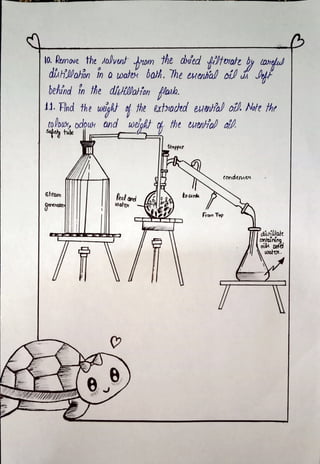 10. Remove the solvent from the dried filterate by careful
distillation in a water bath. The essential oil is left
behind in the distillation flask.
11. Find the weight of the extracted essential oil. Note the
colour, odour and weight of the essential oil.
safety tube
Stopper
condenser
steam
generator
Peel and
water
to sink
From Tap
distillate
containing
oils and
water.